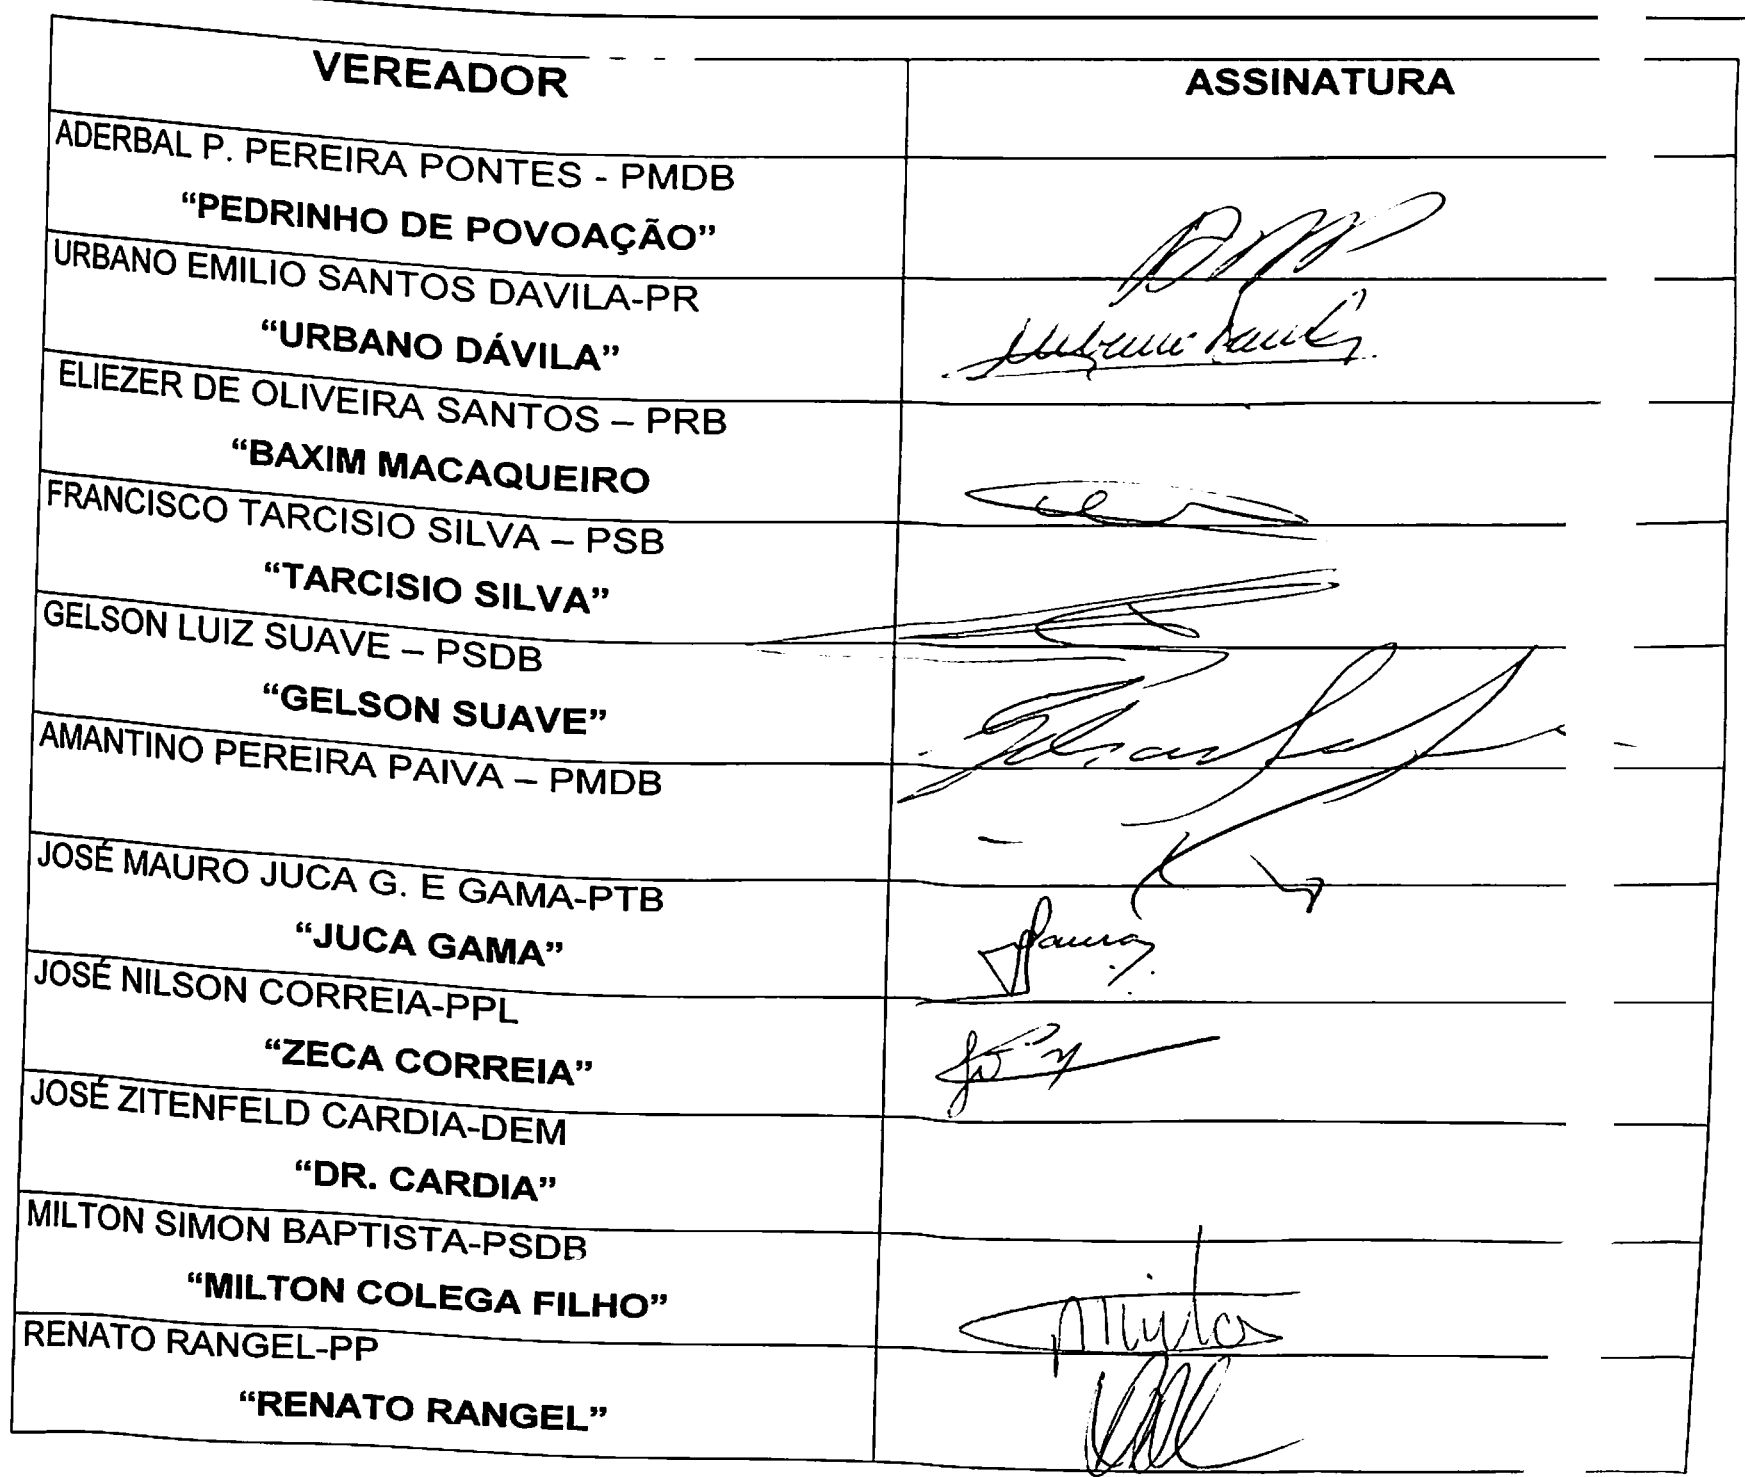 VEREADOR ASSINATURA
ADERBAL P. PEREIRA PONTES - PMDB
“PEDRINHO DE POVOAÇÃO”
URBANO EMILIO SANTOS DAVILA-PR
“URBANO DÁVILA”
ELIEZER DE OLIVEIRA SANTOS – PRB
“BAXIM MACAQUEIRO
FRANCISCO TARCISIO SILVA – PSB
“TARCISIO SILVA”
GELSON LUIZ SUAVE – PSDB
“GELSON SUAVE”
AMANTINO PEREIRA PAIVA – PMDB
JOSÉ MAURO JUCA G. E GAMA-PTB
“JUCA GAMA”
JOSÉ NILSON CORREIA-PPL
“ZECA CORREIA”
JOSÉ ZITENFELD CARDIA-DEM
“DR. CARDIA”
MILTON SIMON BAPTISTA-PSDB
“MILTON COLEGA FILHO”
RENATO RANGEL-PP
“RENATO RANGEL”